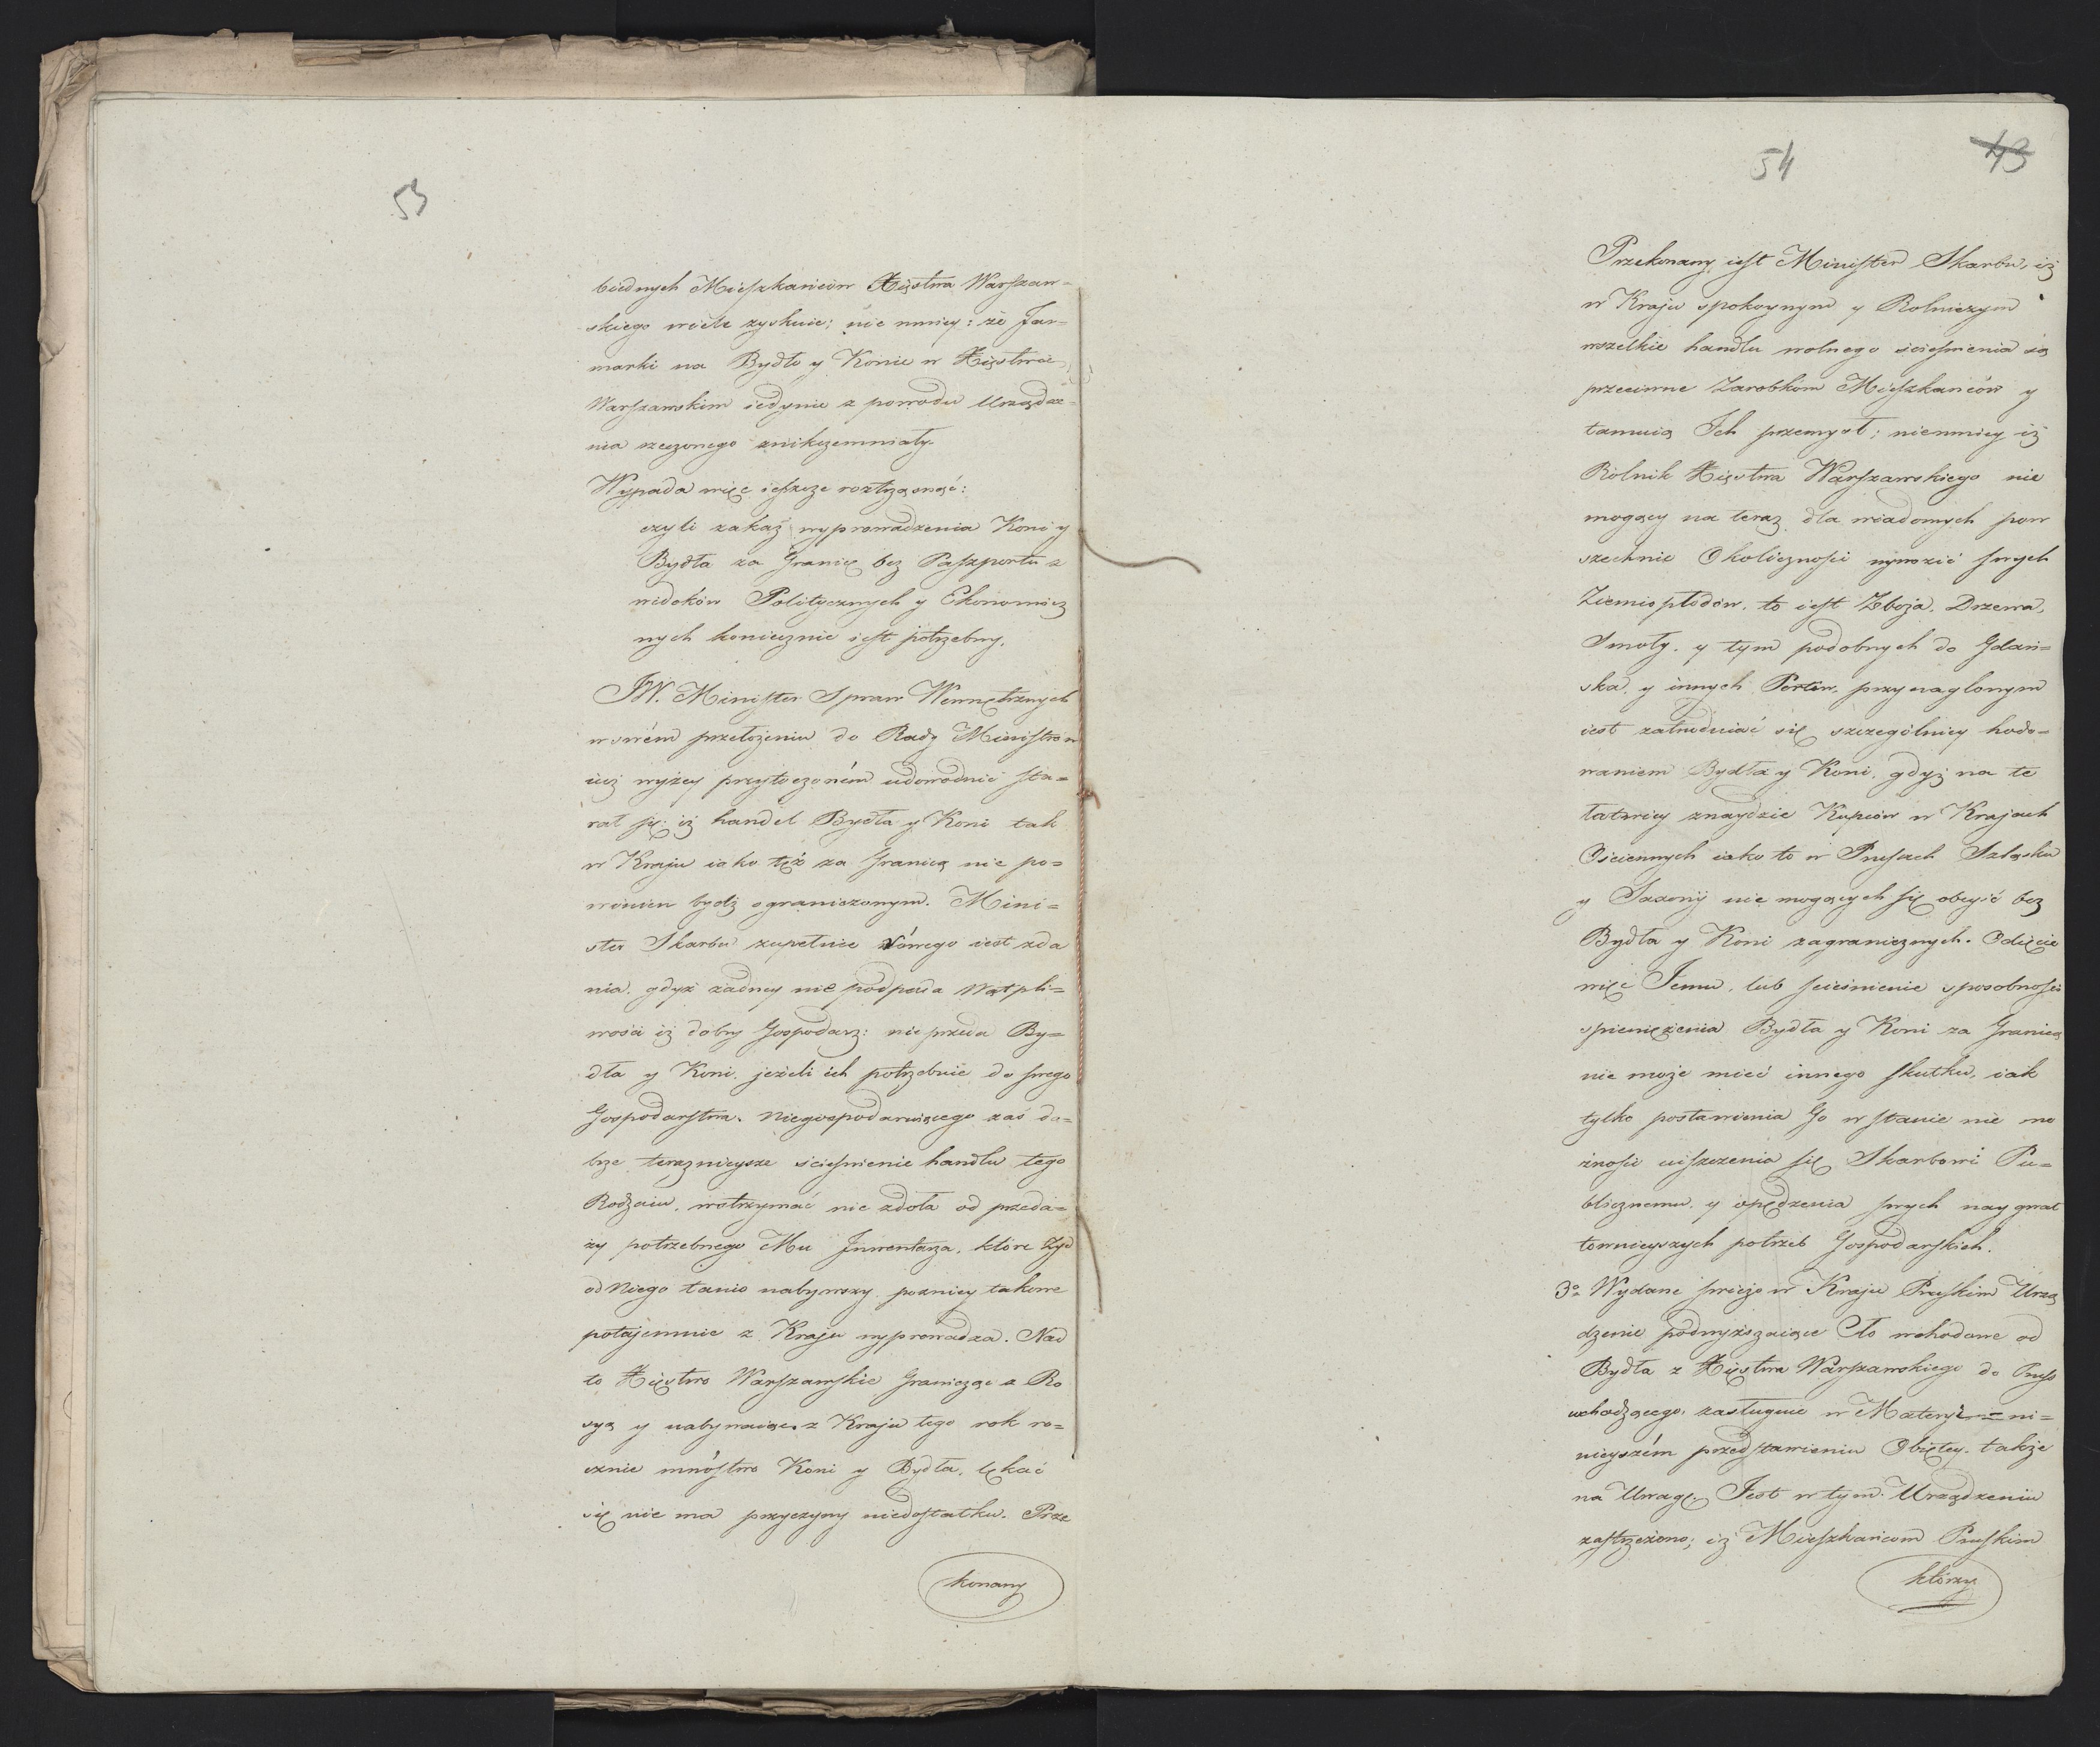 53
biednych Mieszkańców Xięstwa Warszaw=
skiego wiele zyskuie; nie mniey: że Jar=
marki na Bydło y Konie w Xięstwie
Warszawskim iedynie z powodu Urządze=
nia rzeczonego znikczemniały.
Wypada więc ieszcze roztrząsnąć:
czyli zakaz wyprowadzenia Koni y
Bydła za Granicę bez Paszportu z
widoków Politycznych y Ekonomicz
nych koniecznie iest potrzebny.
JW. Minister Spraw Wewnętrznych
w swém przełożeniu do Rady Ministrów
iuż wyżey przytoczoném udowodnić sta=
rał się: iż handel Bydła y Koni tak
w Kraju iako też za Granicą nie po=
winien bydź ograniczonym. Mini=
ster Skarbu zupełnie równego iest zda
nia. gdyż żadney nie podpada Wątpli=
wości iż dobry Gospodarz: nie przeda By=
dła y Koni. jeżeli ich potrzebuie do swego
Gospodarstwa. Niegospodaruiącego zaś do=
brze teraznieysze ścieśnienie handlu tego
Rodzaiu, wstrzymać nie zdoła od przeda=
ży potrzebnego Mu Inwentarza, które Żyd
od Niego tanio nabywszy poźniey takowe
potajemnie z Kraju wyprowadza. Nad
to Xięstwo Warszawskie Graniczące z Ro
syą y nabywaiąc z Kraju tego rok ro=
cznie mnóstwo Koni y Bydła, lękać
się nie ma przyczyny niedostatku. Prze
konany
54
43
Przekonany iest Minister Skarbu, iż
w Kraju spokoynym y Rolniczym
wszelkie handlu wolnego ścieśnienia są
przeciwne Zarobkóm Mieszkańców y
tamuią Ich przemysł; niemniey iż
Rolnik Xięstwa Warszawskiego nie
mogący na teraz dla wiadomych pow
szechnie Okoliczności wywozić swych
Ziemiopłodów, to iest Zboża, Drzewa,
Smoły, y tym podobnych do Gdań=
ska, y innych Portów, przynaglonym
iest zatrudniać się szczególniey hodo=
waniem Bydła y Koni, gdyż na te
łatwiey znaydzie Kupców w Krajach
Ościennych iako to w Prusach Szląsku
y Saxonij nie mogących się obeyść bez
Bydła y Koni zagranicznych. Odięcie
więc Jemu, lub ścieśnienie sposobności
spieniężenia Bydła y Koni za Granicą
nie może mieć innego skutku, iak
tylko postawienia Go w stanie nie mo
żności uiszczenia się Skarbowi Pu=
blicznemu y opędzenia swych naygwał
townieyszych potrzeb Gospodarskich.
3o Wydane świeżo w Kraju Pruskim Urzą
dzenie podwyższaiące Cło wchodowe od
Bydła z Xięstwa Warszawskiego do Pruss
wchodzącego, zasługuie w Materyi = ni=
nieyszém przedstawieniu Obiętey, także
na Uwagę. Jest w tym Urządzeniu
zastrzeżono; iż Mieszkańcom Pruskim
którzy